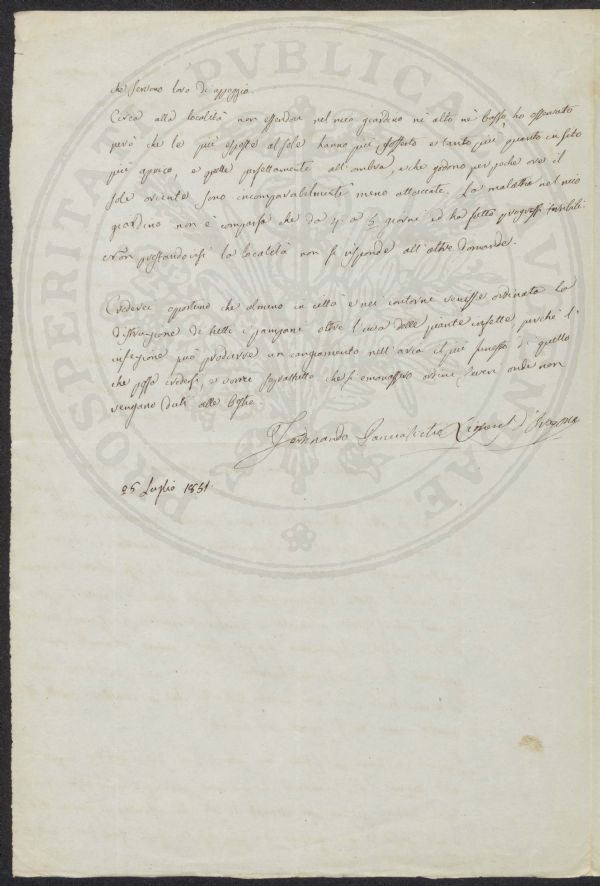 che servono loro di appoggio.
Circa alla località non essendovi nel mio giardino nè alto nè basso, ho osservato
però che le più esposte al sole hanno più sofferto e tanto più, quanto in sito
più aprico, e quelle perfettamente all'ombra, o che godono per poche ore il
sole oriente sono incomparabilmente meno attaccate. La malattia nel mio
giardino non è comparsa che da 4 o 5 giorni ed ha fatto progressi terribili.
Non prestandovisi la località non si risponde all'altre domande.
Crederei opportuno che almeno in città e nei contorni venisse ordinata la
distruzione di tutti i pampani oltre l'uva delle piante infette perchè l'
infezione può produrre un cangiamento nell'aria il più funesto di quello
che possa credersi, e vorrei soprattutto che si emanassero ordini severi onde non
vengano dati alle bestie.
Ferdinando d'Aragona
25 Luglio 1851.
PROSPERITATI PVBLICAE